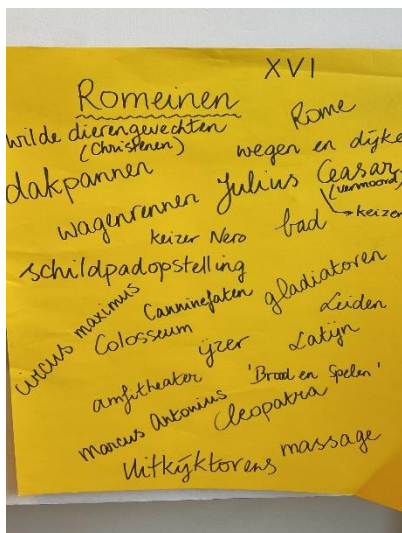 XVI
Romeinen
Rome
wilde dierengevechten
(Christenen)
wegen en dijke
dakpannen
wagenrennen
Julius Ceasar
(vermoord)
keizer
keizer Nero
bad
schildpadopstelling
gladiatoren
circus maximus
Canninefaten
Leiden
Colosseum
ijzer
Latijn
amfitheater
'Brood en Spelen'
Marcus Antonius
Cleopatra
massage
Uitkijktorens